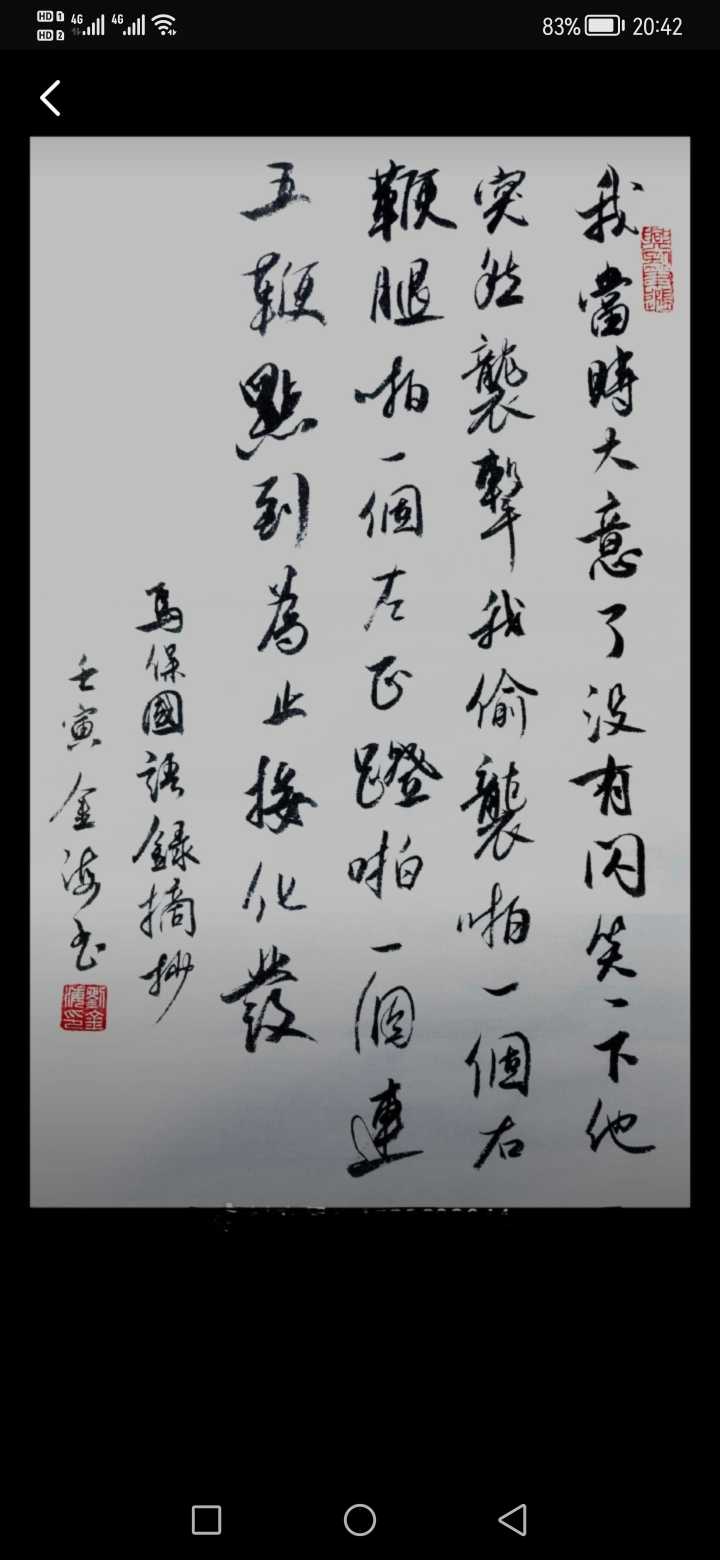 HD 1 4G 4G
HD 2
83% 20:42
我當時大意了没有閃笑一下他
突然襲擊我偷襲啪一個右
鞭腿啪一個左正蹬啪一個連
五鞭點到為止接化發
馬保國語録摘抄
壬寅金海书
劉金海印